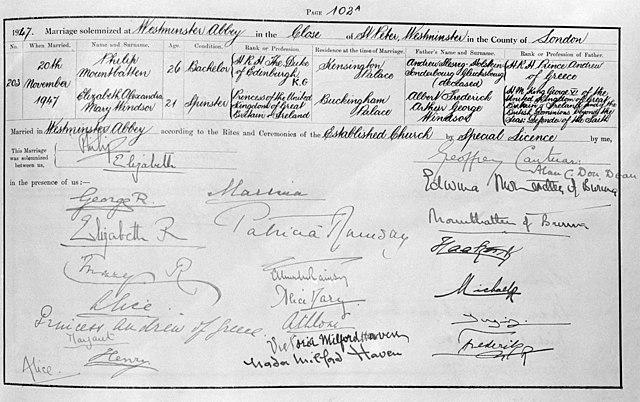 PAGE 102A
1947. Marriage solemnized at Westminster Abbey in the Close of St Peter, Westminster in the County of London
No. When Married. Name and Surname. Age. Condition. Rank or Profession. Residence at the time of Marriage. Father's Name and Surname. Rank or Profession of Father.
203 20th November 1947 Philip Mountbatten 26 Bachelor H.R.H. The Duke of Edinburgh K G Kensington Palace Andrew Glücksburg (deceased) H.R.H. Prince Andrew of Greece
Elizabeth Alexandra Mary Windsor 21 Spinster Princess of the United Kingdom of Great Britain & Ireland Buckingham Palace Albert Frederick Arthur George Windsor H.M. King George VI of the United Kingdom of Great Britain & Ireland and of the British Dominions beyond the Seas: Defender of the Faith
Married in Westminster Abbey according to the Rites and Ceremonies of the Established Church by Special Licence by me,
This Marriage was solemnized between us,
Philip
Elizabeth
Geoffrey Cantuar:
Alan C. Don Dean
in the presence of us:
George R.
Marina
Edwina Mountbatten of Burma
Elizabeth R
Patricia Ramsay
Mountbatten of Burma
Haakon R
Mary R
Michael R
Alice
Alice Mary
Princess Andrew of Greece
Athlone
Margaret
Victoria Milford Haven
Frederik R
Henry
Nada Milford Haven
Alice.